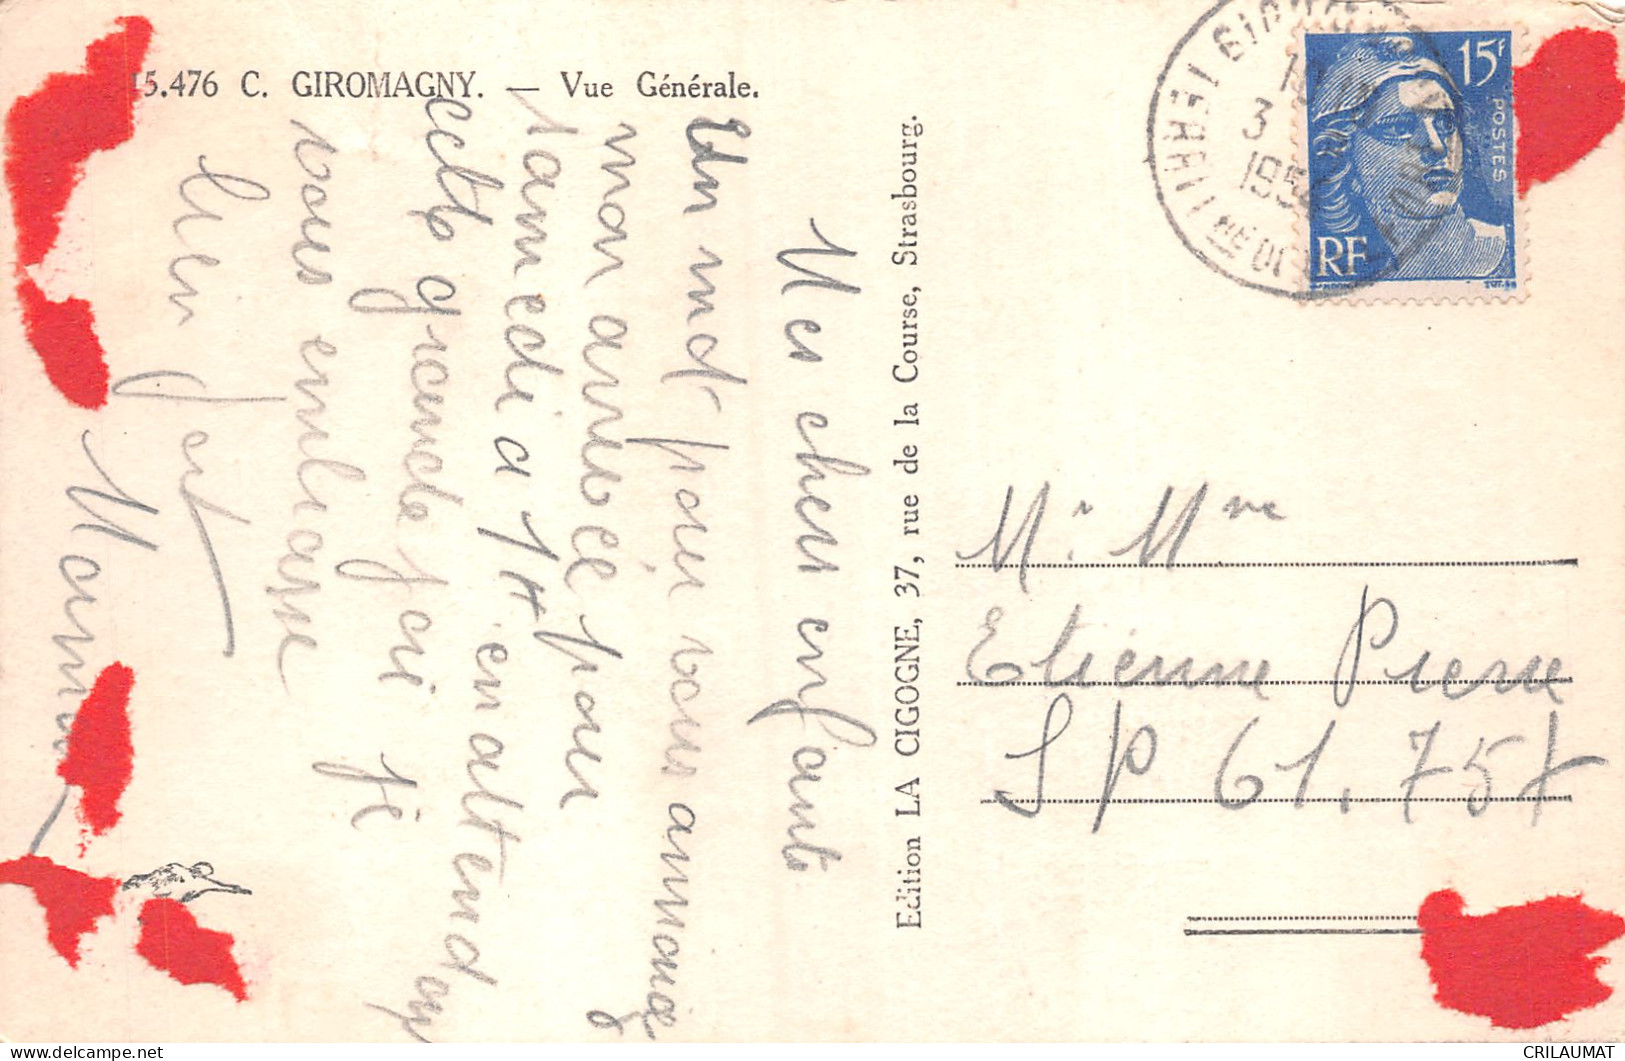 15.476 C. GIROMAGNY. — Vue Générale.
Mes chers enfants
Un mot pour vous annonce
mon arrivée pour
samedi a 7H pour
en attendant
cette grande joie je
vous embrasse
bien fort
Maman
Edition LA CIGOGNE, 37, rue de la Course, Strasbourg.
15F
POSTES
RF
GIROMAGNY
3
195
Mr Mme
Etienne Pierre
SP 61.757
CRILAUMAT